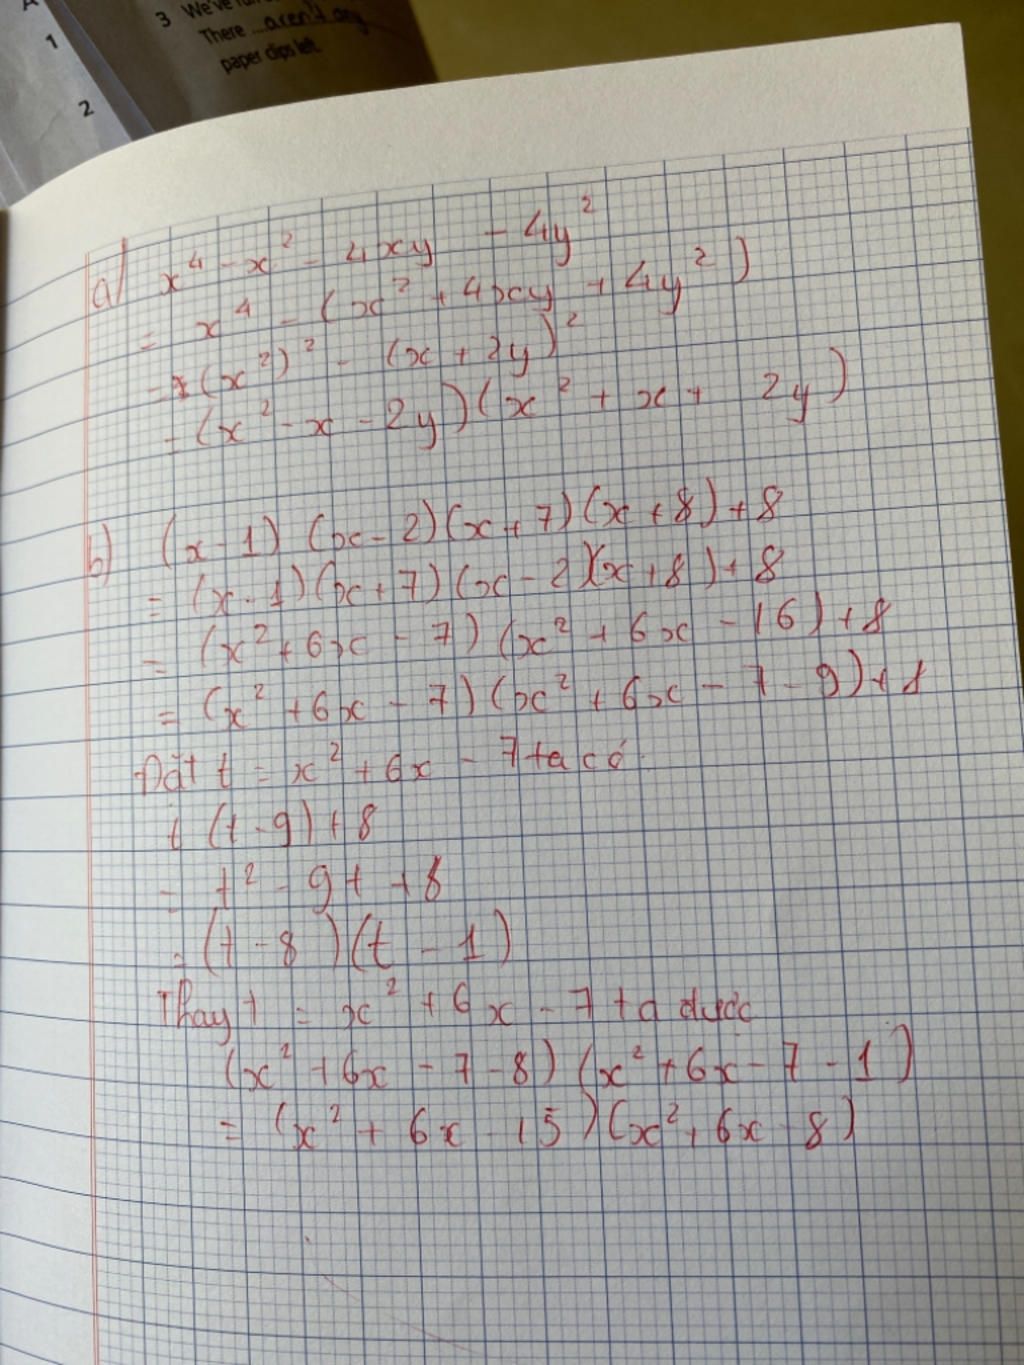 1
2
3 We've run
There ...aren't any
paper clips left.
a) x⁴ - x² - 4xy - 4y²
= x⁴ - (x² + 4xy + 4y²)
= (x²)² - (x + 2y)²
= (x² - x - 2y)(x² + x + 2y)
b) (x - 1)(x - 2)(x + 7)(x + 8) + 8
= (x - 1)(x + 7)(x - 2)(x + 8) + 8
= (x² + 6x - 7)(x² + 6x - 16) + 8
= (x² + 6x - 7)(x² + 6x - 7 - 9) + 8
Đặt t = x² + 6x - 7 ta có
t(t - 9) + 8
= t² - 9t + 8
= (t - 8)(t - 1)
Thay t = x² + 6x - 7 ta được
(x² + 6x - 7 - 8)(x² + 6x - 7 - 1)
= (x² + 6x - 15)(x² + 6x - 8)